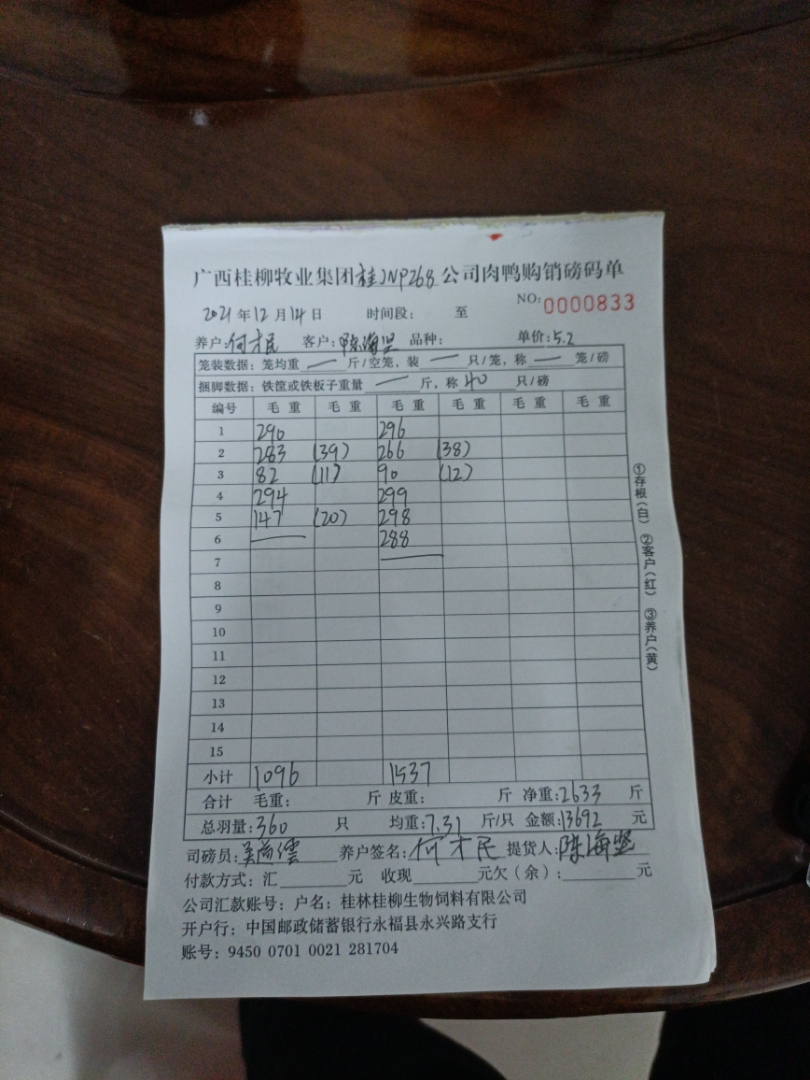 广西桂柳牧业集团桂JNP268公司肉鸭购销磅码单
2021年12月14日 时间段： 至 NO:0000833
养户:何才民 客户:陈海坚 品种： 单价:5.2
笼装数据：笼均重 — 斤/空笼，装 — 只/笼，称 — 笼/磅
捆脚数据：铁筐或铁板子重量 — 斤，称 40 只/磅
编号 毛重 毛重 毛重 毛重 毛重 毛重
1 290 296
2 283 (39) 266 (38)
3 82 (11) 90 (12)
4 294 299
5 147 (20) 298
6 288
7
8
9
10
11
12
13
14
15
小计 1096 1537
合计 毛重： 斤 皮重： 斤 净重:2633 斤
总羽量:360 只 均重:7.31 斤/只 金额:13692 元
司磅员: 养户签名:何才民 提货人:陈海坚
付款方式：汇 元 收现 元欠（余）: 元
公司汇款账号：户名：桂林桂柳生物饲料有限公司
开户行：中国邮政储蓄银行永福县永兴路支行
账号：9450 0701 0021 281704
①存根(白) ②客户(红) ③养户(黄)